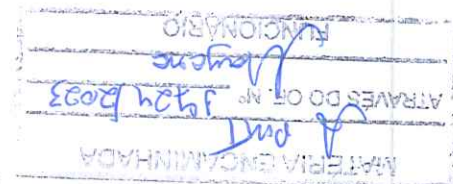 MATÉRIA ENCAMINHADA
À PMT
ATRAVÉS DO OF Nº 3424/2023
FUNCIONÁRIO